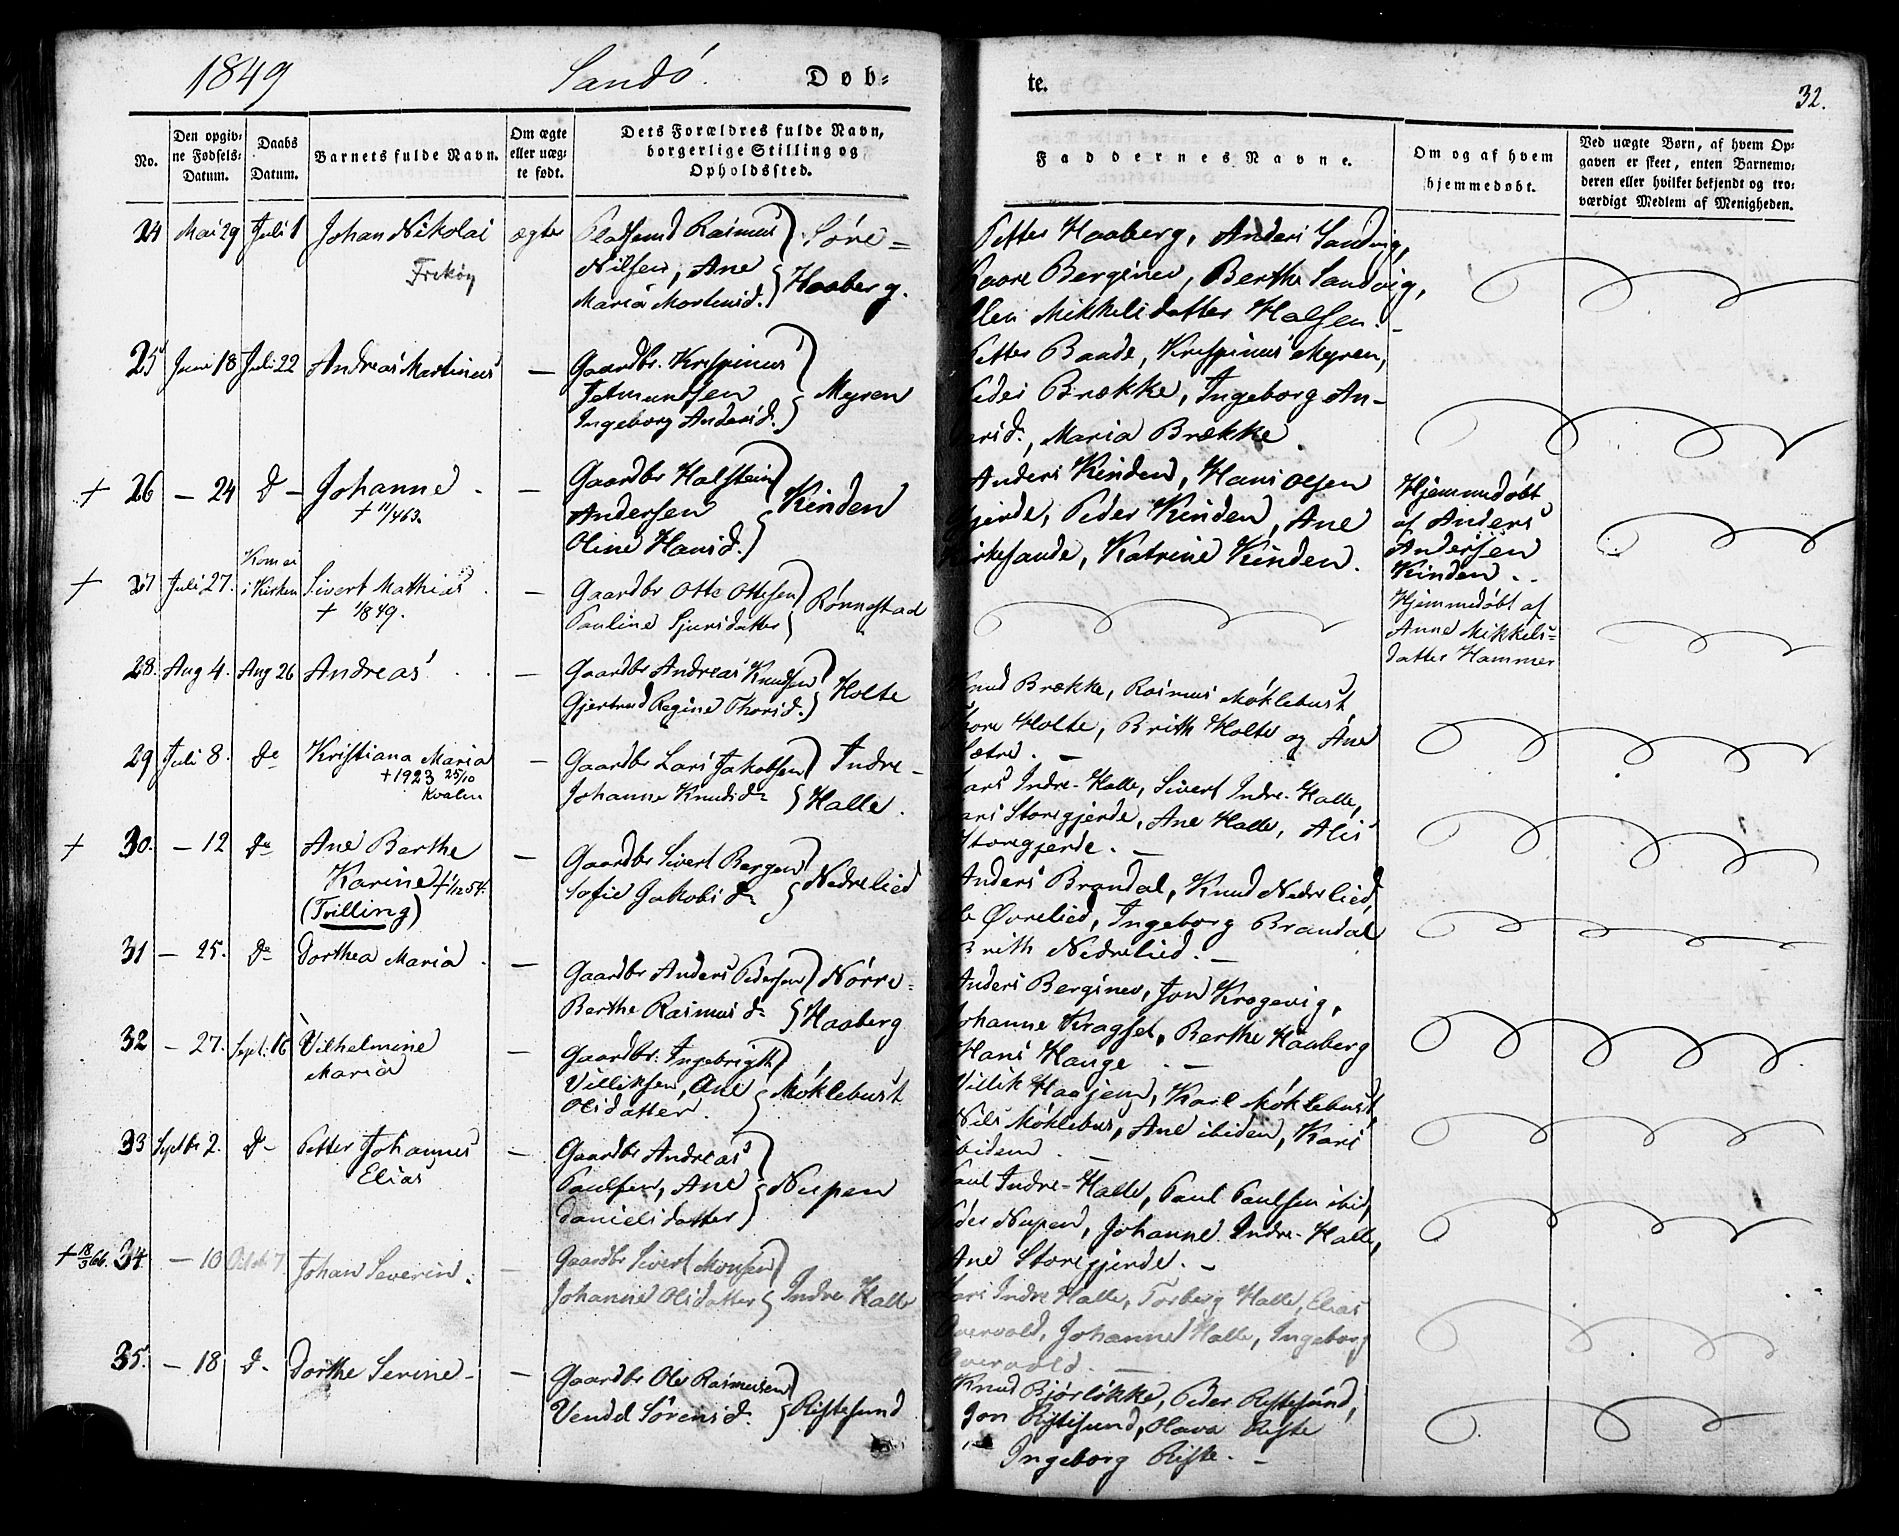 1849 Sandö. Døb-
te. 32.
No.
Den opgiv-
ne Fødsels-
Datum.
Daabs
Datum.
Barnets fulde Navn.
Om ægte
eller uæg-
te født.
Dets Forældres fulde Navn,
borgerlige Stilling og
Opholdssted.
Faddernes Navne.
Om og af hvem
hjemmedøbt.
Ved uægte Børn, af hvem Op-
gaven er skeet, enten Barnemo-
deren eller hvilket bekjendt og tro-
værdigt Medlem af Menigheden.
24 Mai 29 Juli 1 Johan Nikolai ægte
Frekøy
Pladsmd Rasmus
Nilsen, Ane
Maria Mortensd.
Søre-
Haaberg.
Petter Haaberg, Anders Sandvig,
Kaare Berginev, Berthe Sandvig,
Mikkelsdatter Halsen.
25 Juni 18 Juli 22 Andreas Martinus —
Gaardbr. Krispinus
Jetmundsen
Ingeborg Andersd.
Myren
Petter Baade, Krispinus Myren,
Peder Brække, Ingeborg An-
dersd., Maria Brække
+ 26 — 24 d — Johanne —
+ 11/4 63.
Gaardbr Halstein
Andersen
Oline Hansd.
Kinden
Anders Kinden, Hans Olsen
Gjerde, Peder Kinden, Ane
Kirkesande, Katrine Kinden.
Hjemmedøbt
af Anders
Andersen
Kinden.
+ 27 Juli 27. Kom ei
i Kirken
Sivert Mathias —
+ 1/8 49.
Gaardbr Otte Ottesen
Pauline Sjursdatter
Rønnestad
Hjemmedøbt af
Anne Mikkels-
datter Hammer
28. Aug 4. Aug 26 Andreas —
Gaardbr Andreas Knudsen
Gjertrud Regine Thorsd.
Holte
Knud Brække, Rasmus Møklebust
Thore Holte, Brith Holte og Ane
Sætre. —
29 Juli 8. do Kristiana Maria —
+ 1923 25/10
Kvalen
Gaardbr Lars Jakobsen
Johanne Knudsd.
Indre-
Halle.
Lars Indre-Halle, Sivert Indre-Halle,
Storegjerde, Ane Halle, Alis
Storegjerde. —
+ 30. — 12 do Ane Berthe —
Karine +
(Tvilling)
Gaardbr Sivert Bergen
Sofie Jakobsd.
Nedrelied
Anders Brandal, Knud Nedrelied,
Øvrelied, Ingeborg Brandal
Brith Nedrelied. —
31 — 25. do Dorthea Maria. —
Gaardbr Anders Pedersen
Berthe Rasmusd.
Nørre-
Haaberg
Anders Berginev, Jon Kragevig,
Johanne Kragset, Berthe Haaberg
Hans Hauge. —
32 — 27. Sept. 16 Vilhelmine —
Maria
Gaardbr. Ingebrigt
Villiksen, Ane
Olsdatter.
Møklebust
Villik Haajem, Karl Møklebust,
Nils Møklebus, Ane ibiden, Kari
ibidem. —
33 Septbr 2. do Petter Johannes —
Elias
Gaardbr Andreas
Paulsen, Ane
Danielsdatter
Nupen
Paul Indre-Halle, Paul Paulsen ibid,
Peder Nupen, Johanne Indre-Halle,
Ane Storegjerde. —
+ 18/3 66. 34. — 10 Octob 7. Johan Severin. —
Gaardbr Sivert Monsen
Johanne Olsdatter
Indre Halle
Lars Indre Halle, Torberg Halle, Elias
Overvold, Johanne Halle, Ingeborg
Overvold. —
35. — 18 d. Dorthe Serine —
Gaardbr Ole Rasmusen
Vendel Sørensd.
Ristesund
Knud Bjørløkke, Peder Ristesund,
Jon Ristesund, Olava Riste
Ingeborg Riste. —